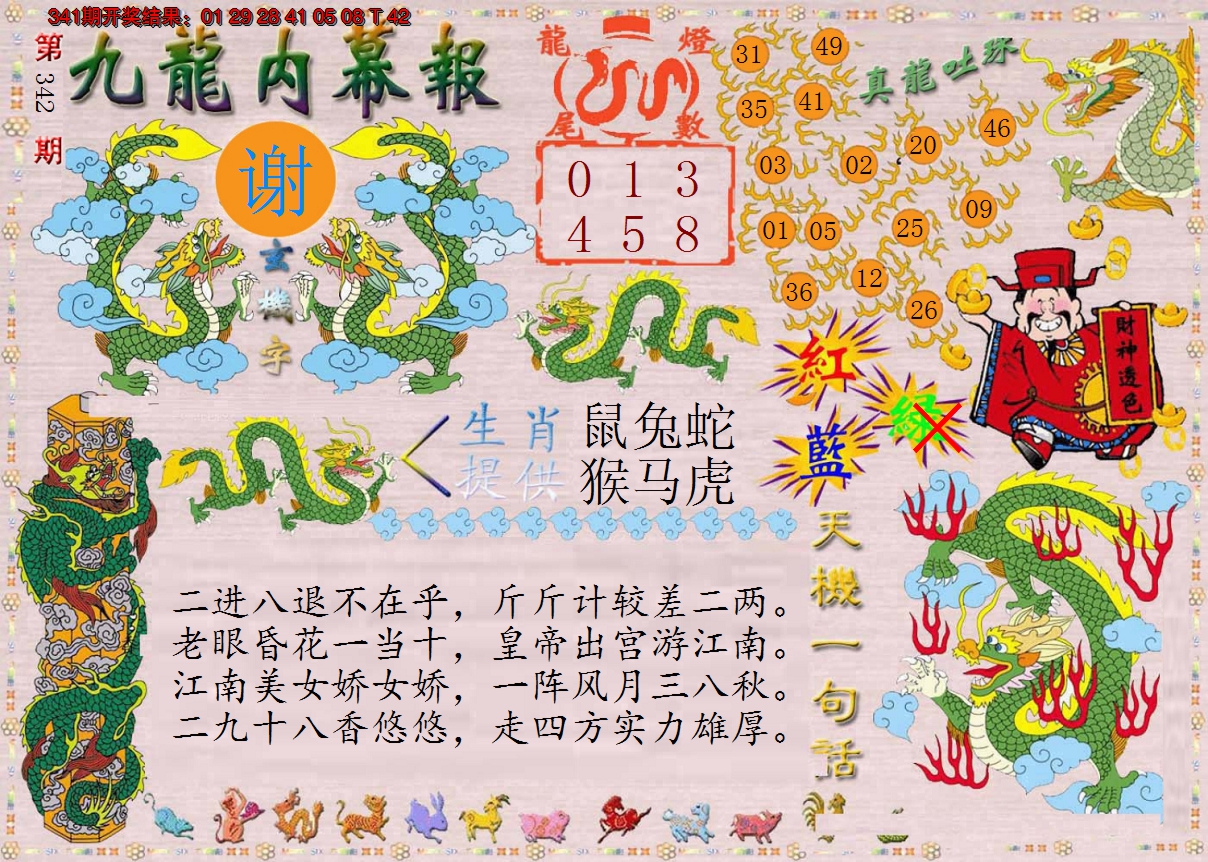 341期开奖结果：01 29 28 41 05 08 T 42
第342期
九龍内幕報
谢
玄機字
龍燈
尾數
0 1 3
4 5 8
真龍吐珠
31 49
35 41
03 02 20 46
01 05 25 09
36 12
26
財神透色
紅
綠
藍
生肖 鼠兔蛇
提供 猴马虎
天機一句話
二进八退不在乎，斤斤计较差二两。
老眼昏花一当十，皇帝出宫游江南。
江南美女娇女娇，一阵风月三八秋。
二九十八香悠悠，走四方实力雄厚。